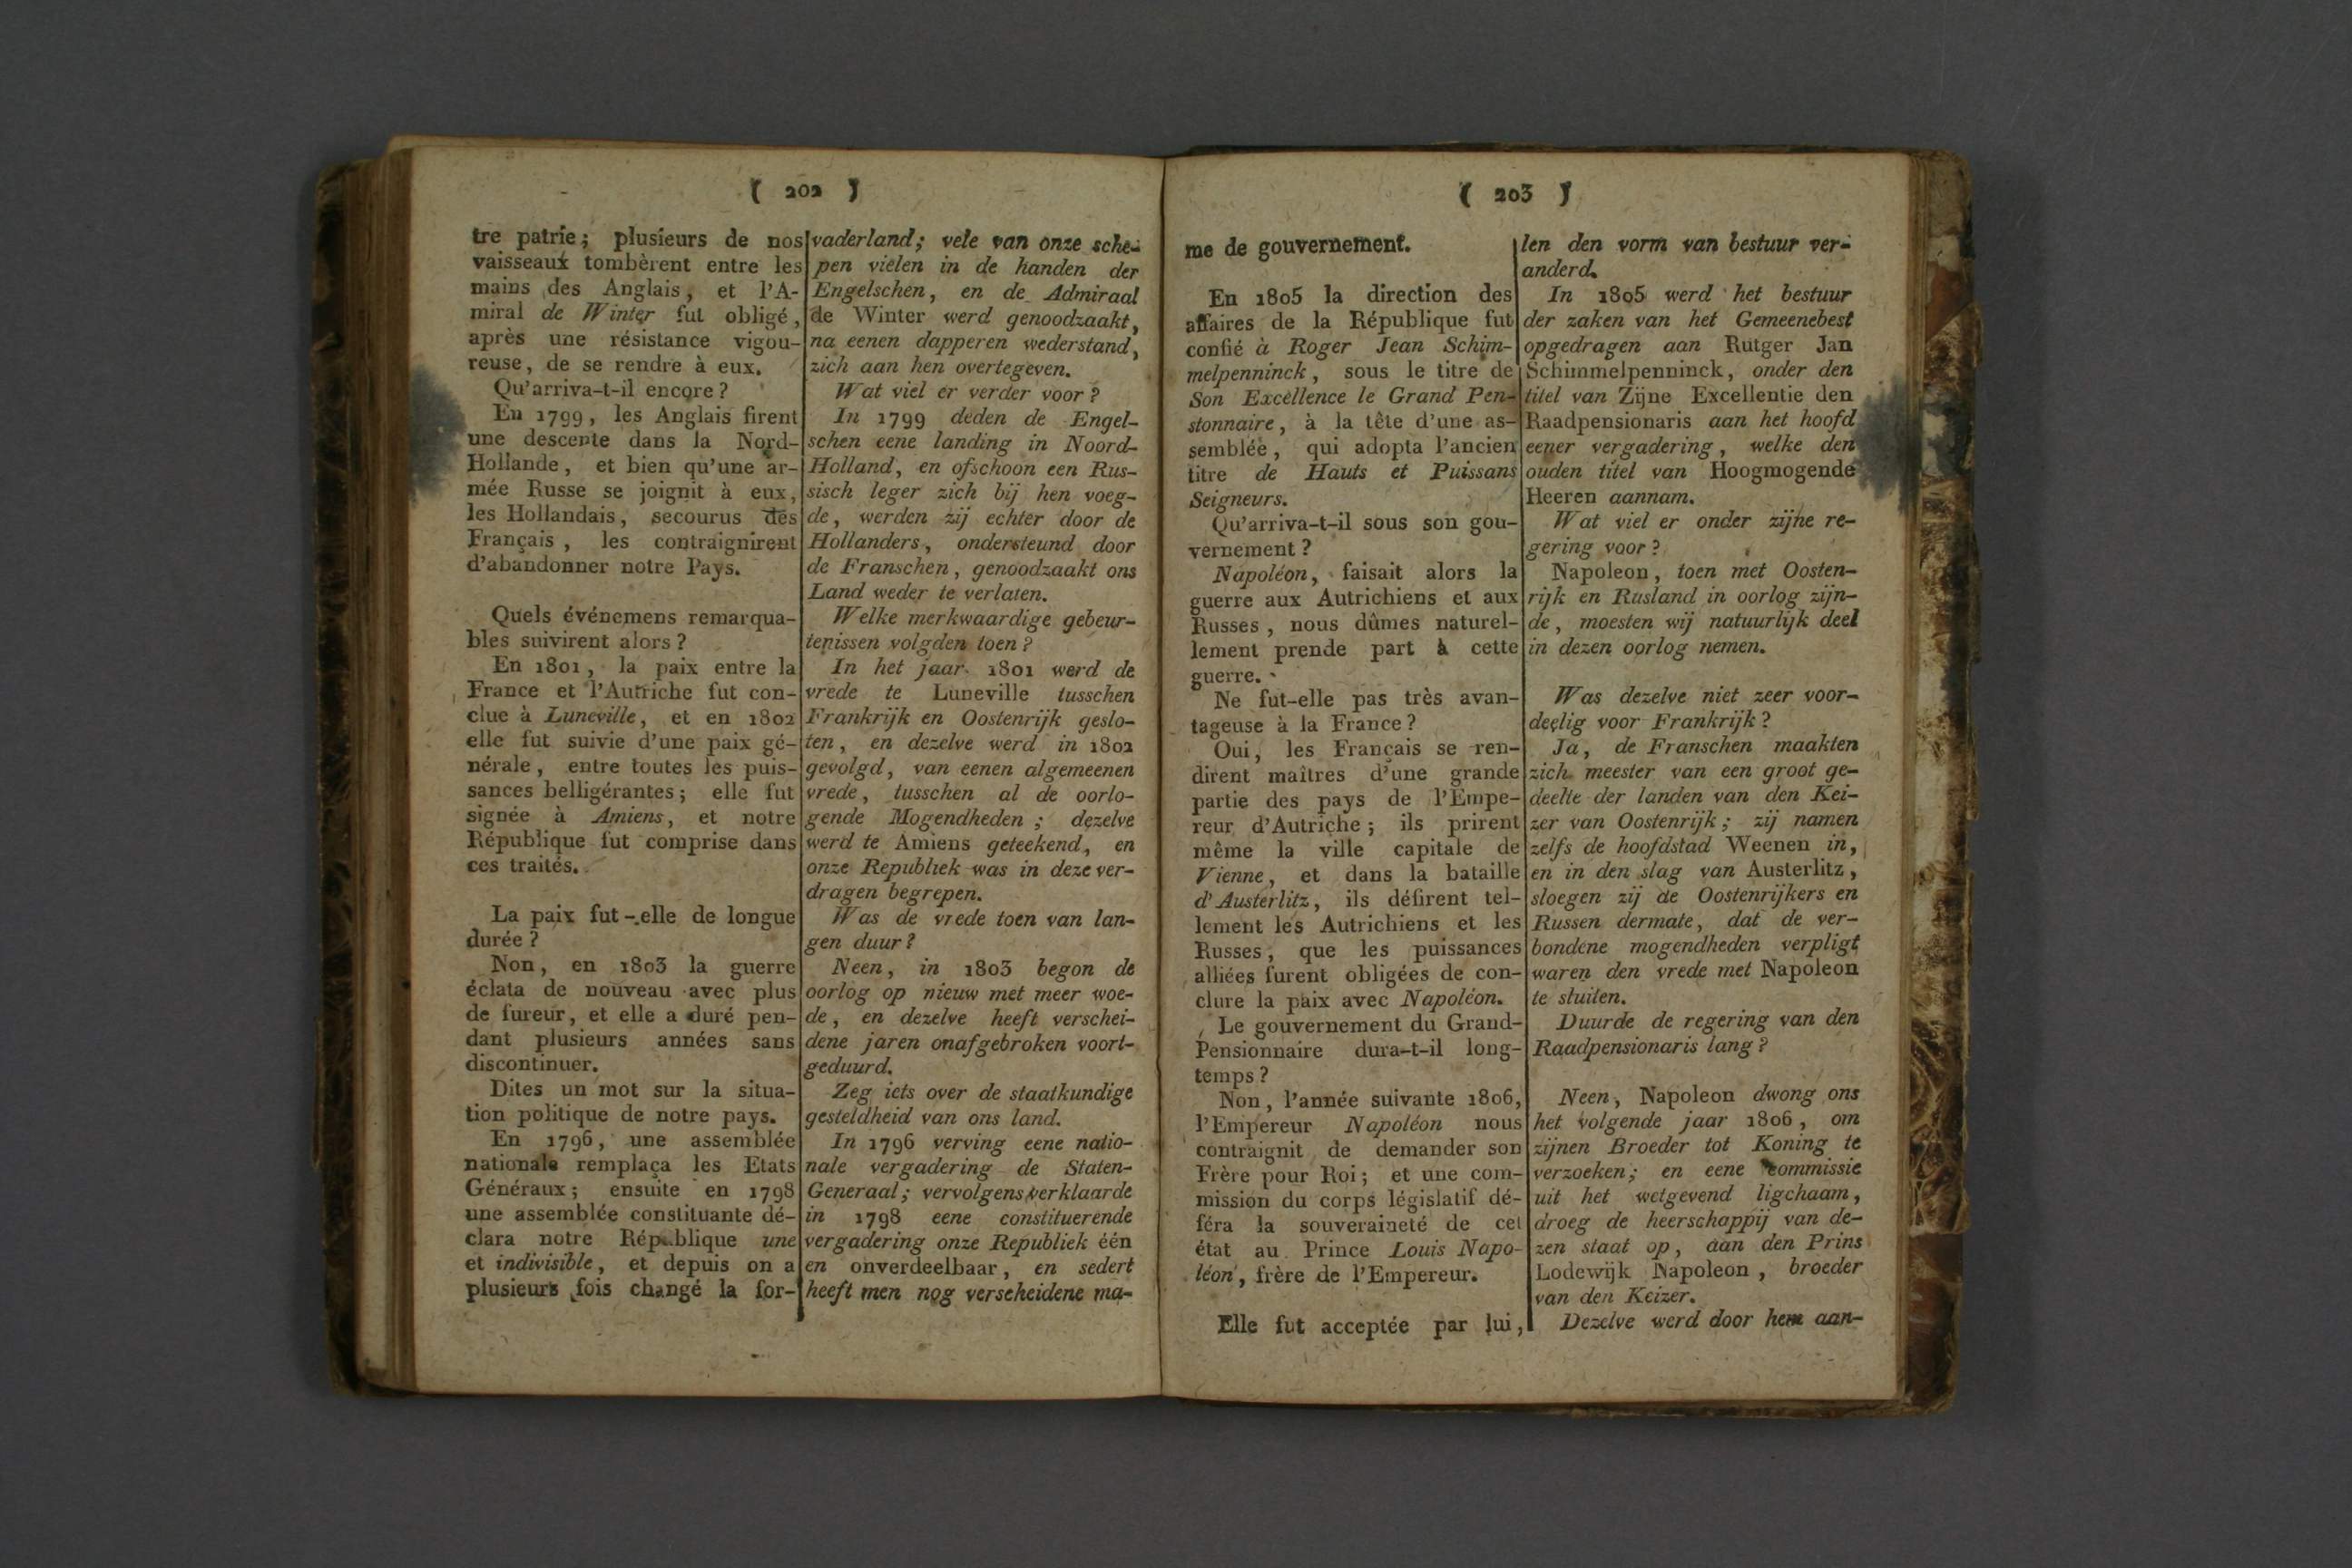 ( 202 )
tre patrie; plusieurs de nos
vaisseaux tombèrent entre les
mains des Anglais, et l'A-
miral de Winter fut obligé,
après une résistance vigou-
reuse, de se rendre à eux.
Qu'arriva-t-il encore?
En 1799, les Anglais firent
une descente dans la Nord-
Hollande, et bien qu'une ar-
mée Russe se joignit à eux,
les Hollandais, secourus des
Français, les contraignirent
d'abandonner notre Pays.
Quels événemens remarqua-
bles suivirent alors?
En 1801, la paix entre la
France et l'Autriche fut con-
clue à Luneville, et en 1802
elle fut suivie d'une paix gé-
nérale, entre toutes les puis-
sances belligérantes; elle fut
signée à Amiens, et notre
République fut comprise dans
ces traités.
La paix fut-elle de longue
durée?
Non, en 1803 la guerre
éclata de nouveau avec plus
de fureur, et elle a duré pen-
dant plusieurs années sans
discontinuer.
Dites un mot sur la situa-
tion politique de notre pays.
En 1796, une assemblée
nationale remplaça les Etats
Généraux; ensuite en 1798
une assemblée constituante dé-
clara notre République une
et indivisible, et depuis on a
plusieurs fois changé la for-
vaderland; vele van onze sche-
pen vielen in de handen der
Engelschen, en de Admiraal
de Winter werd genoodzaakt,
na eenen dapperen wederstand,
zich aan hen overtegeven.
Wat viel er verder voor?
In 1799 deden de Engel-
schen eene landing in Noord-
Holland, en ofschoon een Rus-
sisch leger zich bij hen voeg-
de, werden zij echter door de
Hollanders, ondersteund door
de Franschen, genoodzaakt ons
Land weder te verlaten.
Welke merkwaardige gebeur-
tenissen volgden toen?
In het jaar 1801 werd de
vrede te Luneville tusschen
Frankrijk en Oostenrijk geslo-
ten, en dezelve werd in 1802
gevolgd, van eenen algemeenen
vrede, tusschen al de oorlo-
gende Mogendheden; dezelve
werd te Amiens geteekend, en
onze Republiek was in deze ver-
dragen begrepen.
Was de vrede toen van lan-
gen duur?
Neen, in 1803 begon de
oorlog op nieuw met meer woe-
de, en dezelve heeft verschei-
dene jaren onafgebroken voort-
geduurd.
Zeg iets over de staatkundige
gesteldheid van ons land.
In 1796 verving eene natio-
nale vergadering de Staten-
Generaal; vervolgens verklaarde
in 1798 eene constituerende
vergadering onze Republiek één
en onverdeelbaar, en sedert
heeft men nog verscheidene ma-
( 203 )
me de gouvernement.
En 1805 la direction des
affaires de la République fut
confié à Roger Jean Schim-
melpenninck, sous le titre de
Son Excellence le Grand Pen-
stonnaire, à la tête d'une as-
semblée, qui adopta l'ancien
titre de Hauts et Puissans
Seigneurs.
Qu'arriva-t-il sous son gou-
vernement?
Napoléon, faisait alors la
guerre aux Autrichiens et aux
Russes, nous dûmes naturel-
lement prende part à cette
guerre.
Ne fut-elle pas très avan-
tageuse à la France?
Oui, les Français se ren-
dirent maîtres d'une grande
partie des pays de l'Empe-
reur d'Autriche; ils prirent
même la ville capitale de
Vienne, et dans la bataille
d'Austerlitz, ils défirent tel-
lement les Autrichiens et les
Russes, que les puissances
alliées furent obligées de con-
clure la paix avec Napoléon.
Le gouvernement du Grand-
Pensionnaire dura-t-il long-
temps?
Non, l'année suivante 1806,
l'Empereur Napoléon nous
contraignit de demander son
Frère pour Roi; et une com-
mission du corps législatif dé-
féra la souveraineté de cet
état au Prince Louis Napo-
léon, frère de l'Empereur.
Elle fut acceptée par lui,
len den vorm van bestuur ver-
anderd.
In 1805 werd het bestuur
der zaken van het Gemeenebest
opgedragen aan Rutger Jan
Schimmelpenninck, onder den
titel van Zijne Excellentie den
Raadpensionaris aan het hoofd
eener vergadering, welke den
ouden titel van Hoogmogende
Heeren aannam.
Wat viel er onder zijne re-
gering voor?
Napoleon, toen met Oosten-
rijk en Rusland in oorlog zijn-
de, moesten wij natuurlijk deel
in dezen oorlog nemen.
Was dezelve niet zeer voor-
deelig voor Frankrijk?
Ja, de Franschen maakten
zich meester van een groot ge-
deelte der landen van den Kei-
zer van Oostenrijk; zij namen
zelfs de hoofdstad Weenen in,
en in den slag van Austerlitz,
sloegen zij de Oostenrijkers en
Russen dermate, dat de ver-
bondene mogendheden verpligt
waren den vrede met Napoleon
te sluiten.
Duurde de regering van den
Raadpensionaris lang?
Neen, Napoleon dwong ons
het volgende jaar 1806, om
zijnen Broeder tot Koning te
verzoeken; en eene commissie
uit het wetgevend ligchaam,
droeg de heerschappij van de-
zen staat op, aan den Prins
Lodewijk Napoleon, broeder
van den Keizer.
Dezelve werd door hem aan-